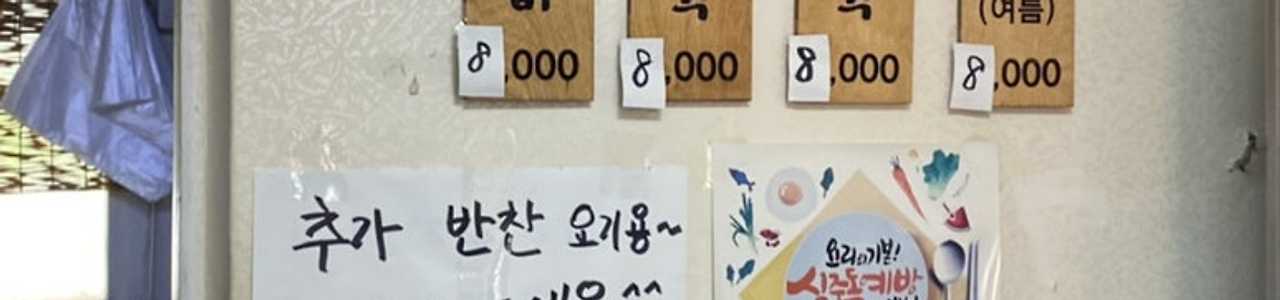 (여름)
8,000 8,000 8,000 8,000
추가 반찬 요기용~
요리의 기본!
식중독예방